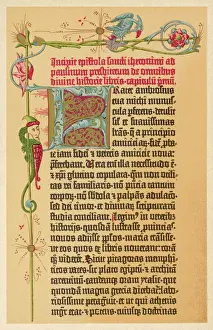 Incipit epistola sancti iheronimi ad
paulinum presbiterum de omnibus
divine historie libris capitulũ primũ.
Frater ambrosius
tua michi munuscula
perferens detulit
sĩl et suavissimas
lrãs q̃ a principio
amicicie fidẽ
tam fidei et veteris amicicie nova
pferebant Vera em̃ illa necessitudo ẽ
et xp̃i glutino copulata qm̃ non utilitas
rei familiaris nõ presentia tantum
corporũ nõ subdola et palpãs adulacio
sed dei timor et divinarũ scripturarũ
studia conciliant Legimus in veteribus
historijs quosdã lustrasse
novos adijsse populos maria
ut eos quos ex libris noverant coram
viderent Sicut pitagoras memphiticos
vates sic plato egiptũ et architã
tarentinũ eandemq oram ytalie que
quondã magna grecia dicebat
peragravit et ut qui athenis